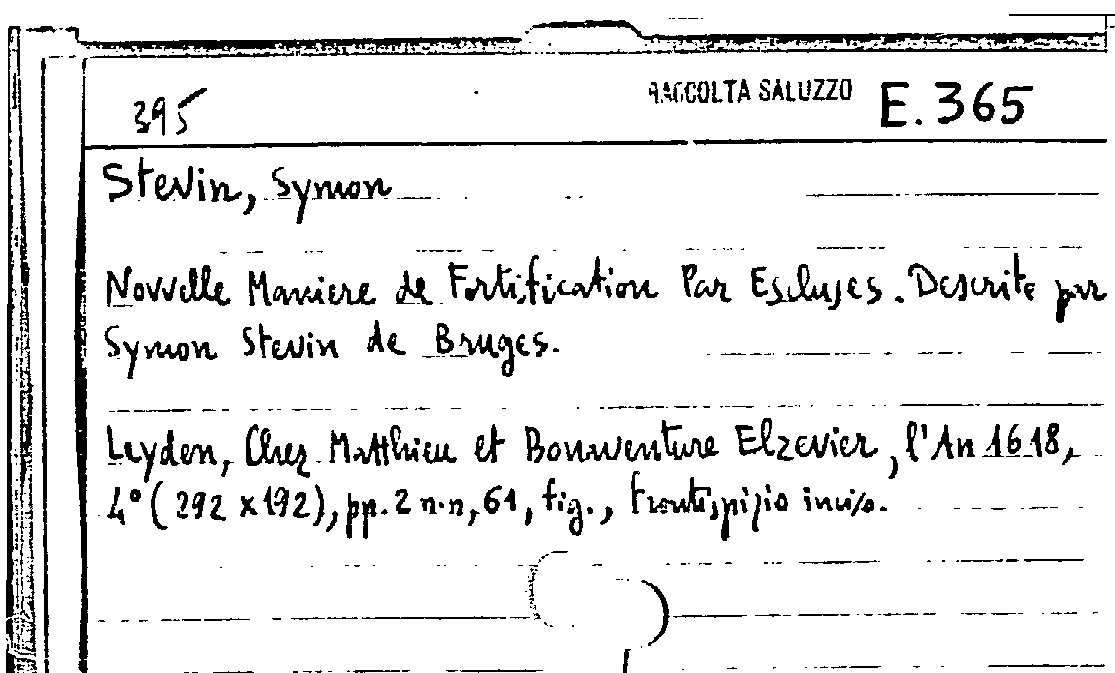 395 RACCOLTA SALUZZO E.365
Stevin, Symon
Novvelle Maniere de Fortification Par Escluses. Descrite par
Symon Stevin de Bruges.
Leyden, Chez Matthieu et Bonaventure Elzevier, l'An 1618,
4° (292 x 192), pp. 2 n.n, 61, fig., frontispizio inciso.